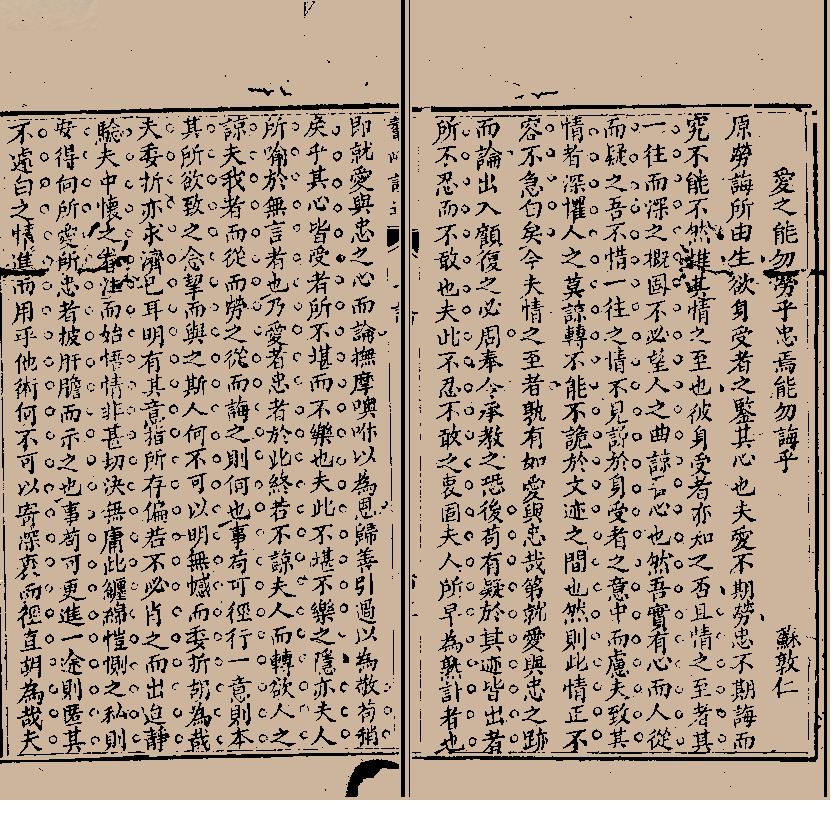 愛之能勿勞乎忠焉能勿誨乎 蘇敦仁
原勞誨所由生欲身受者之鑒其心也夫愛不期勞忠不期誨而
究不能不然雖其情之至也彼身受者亦知之否且情之至者其
一往而深之概固不必望人之曲諒吾心也然吾實有心而人從
而疑之吾不惜一往之情不見諒於身受者之意中而慮夫致其
情者深懼人之莫諒轉不能不詭於文迹之間也然則此情正不
容不急白矣今夫情之至者孰有如愛與忠哉第就愛與忠之跡
而論出入顧復之必周奉令承教之恐後苟有疑於其迹皆出者
所不忍而不敢也夫此不忍不敢之衷固夫人所早為熟計者也
即就愛與忠之心而論撫摩噢咻以為恩歸善引過以為敬苟稍
戾乎其心皆受者所不堪而不樂也夫此不堪不樂之隱亦夫人
所喻於無言者也乃愛者忠者於此終若不諒夫人而轉欲人之
諒夫我者而從而勞之從而誨之則何也事苟可徑行一意則本
其所欲致之念挈而與之斯人何不可以明無憾而委折胡為哉
夫委折亦求濟已耳明有其意指所存偏若不必肖之而出迨靜
驗夫中懷之眷注而始悟情非甚切決無庸此纏綿愷惻之私則
安得向所愛所忠者披肝膽而示之也事苟可更進一途則匿其
不遽白之情進而用乎他術何不可以寄深衷而徑直胡為哉夫